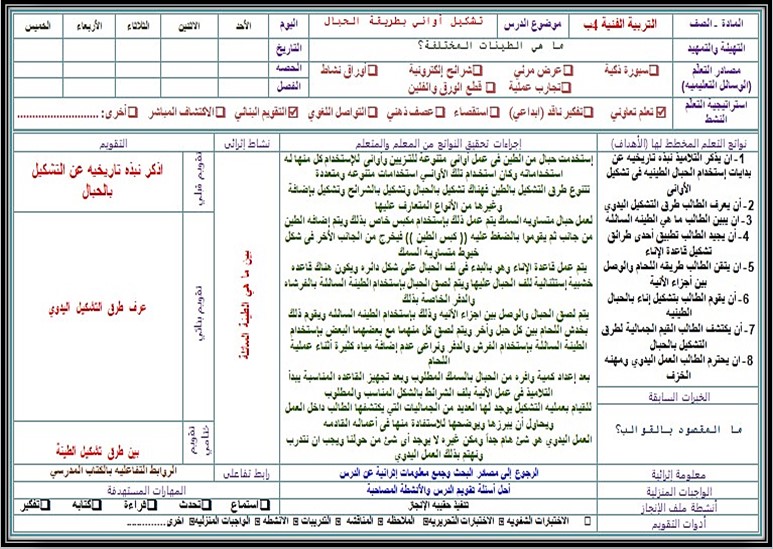 المادة - الصف
التربية الفنية 4ب
موضوع الدرس
تشكيل أواني بطريقة الحبال
اليوم
الأحد
الاثنين
الثلاثاء
الأربعاء
الخميس
التهيئة والتمهيد
ما هي الطينات المختلفة؟
التاريخ
مصادر التعلم
(الوسائل التعليمية)
سبورة ذكية
عرض مرئي
شرائح إلكترونية
أوراق نشاط
الحصه
تجارب عملية
قطع الورق والفلين
الفصل
استراتيجية التعلم
النشط
تعلم تعاوني
تفكير ناقد (ابداعي)
استقصاء
عصف ذهني
التواصل اللغوي
التقويم البنائي
الاكتشاف المباشر
أخرى: ............................
نواتج التعلم المخطط لها (الأهداف)
1- ان يذكر التلاميذ نبذه تاريخيه عن
بدايات إستخدام الحبال الطينيه فى تشكيل
الأوانى
2- أن يعرف الطالب طرق التشكيل اليدوي
3- ان يبين الطالب ما هي الطينه السائله
4- أن يجيد الطالب تطبيق أحدى طرائق
تشكيل قاعدة الإناء
5- ان يتقن الطالب طريقه اللحام والوصل
بين أجزاء الأنية
6- أن يقوم الطالب بتشكيل إناء بالحبال
الطينيه
7- أن يكتشف الطالب القيم الجمالية لطرق
التشكيل بالحبال
8- ان يحترم الطالب العمل اليدوي ومهنه
الخزف
الخبرات السابقة
ما المقصود بالقوالب؟
إجراءات تحقيق النواتج من المعلم والمتعلم
إستخدمت حبال من الطين فى عمل أوانى متنوعه للتزيين وأوانى للإستخدام كل منها له
استخداماته وكان استخدام تلك الأوانسي استخدامات متنوعة ومتعددة
تتنوع طرق التشكيل بالطين فهناك تشكيل بالحبال وتشكيل بالشرائح وتشكيل بإضافة
وغيرها من الأنواع المتعارف عليها
لعمل حبال متساويه السمك يتم عمل ذلك بإستخدام مكبس خاص بذلك ويتم إضافه الطين
من جانب ثم يقوموا بالضغط عليه (( كبس الطين )) فيخرج من الجانب الأخر فى شكل
خيوط متساوية السمك
يتم عمل قاعدة الإناء وهو بالبدء فى لف الحبال على شكل دائره ويكون هناك قاعده
خشبية إستثنائية للف الحبال عليها ويتم لصق الحبال بإستخدام الطينه السائلة بالفرشاه
والدفر الخاصة بذلك
يتم لصق الحبال والوصل بين اجزاء الأنيه وذلك بإستخدام الطينه السائله ويقوم ذلك
بخدش اللحام بين كل حبل وآخر ويتم لصق كل منهما مع بعضهما البعض بإستخدام
الطينة السائلة بإستخدام الفرش والدفر ونراعى عدم إضافة مياه كثيرة أثناء عملية
اللحام
بعد إعداد كمية وافره من الحبال بالسمك المطلوب وبعد تجهيز القاعده المناسبة يبدأ
التلاميذ فى عمل الأنية بلف الشرائط بالشكل المناسب والمطلوب
للقيام بعمليه التشكيل يوجد لها العديد من الجماليات التي يكتشفها الطالب داخل العمل
ويحاول أن يبرزها ويوضحها للاستفادة منها في أعماله القادمه
العمل اليدوي هو شئ هام جداً ومكن غيره لا يوجد أى شئ من حولنا ويجب ان نتدرب
ونهتم بذلك العمل اليدوي
نشاط إثرائي
بين ما هي الطينة السائلة
التقويم
تقويم قبلي
اذكر نبذه تاريخيه عن التشكيل
بالحبال
تقويم بنائي
عرف طرق التشكيل اليدوي
تقويم ختامي
بين طرق تشكيل الطينة
معلومة إثرائية
الرجوع إلى مصادر البحث وجمع معلومات إثرائية عن الدرس
رابط تفاعلى
الروابط التفاعليه بالكتاب المدرسي
الواجبات المنزلية
أحل أسئلة تقويم الدرس والأنشطة المصاحبة
المهارات المستهدفة
أنشطة ملف الإنجاز
تنفيذ حقيبه الإنجاز
استماع
تحدث
قراءة
كتابه
تفكير
أدوات التقويم
الاختبارات الشفويه
الاختبارات التحريريه
الملاحظه
المناقشه
التدريبات
الانشطه
الواجبات المنزليه
اخرى..............